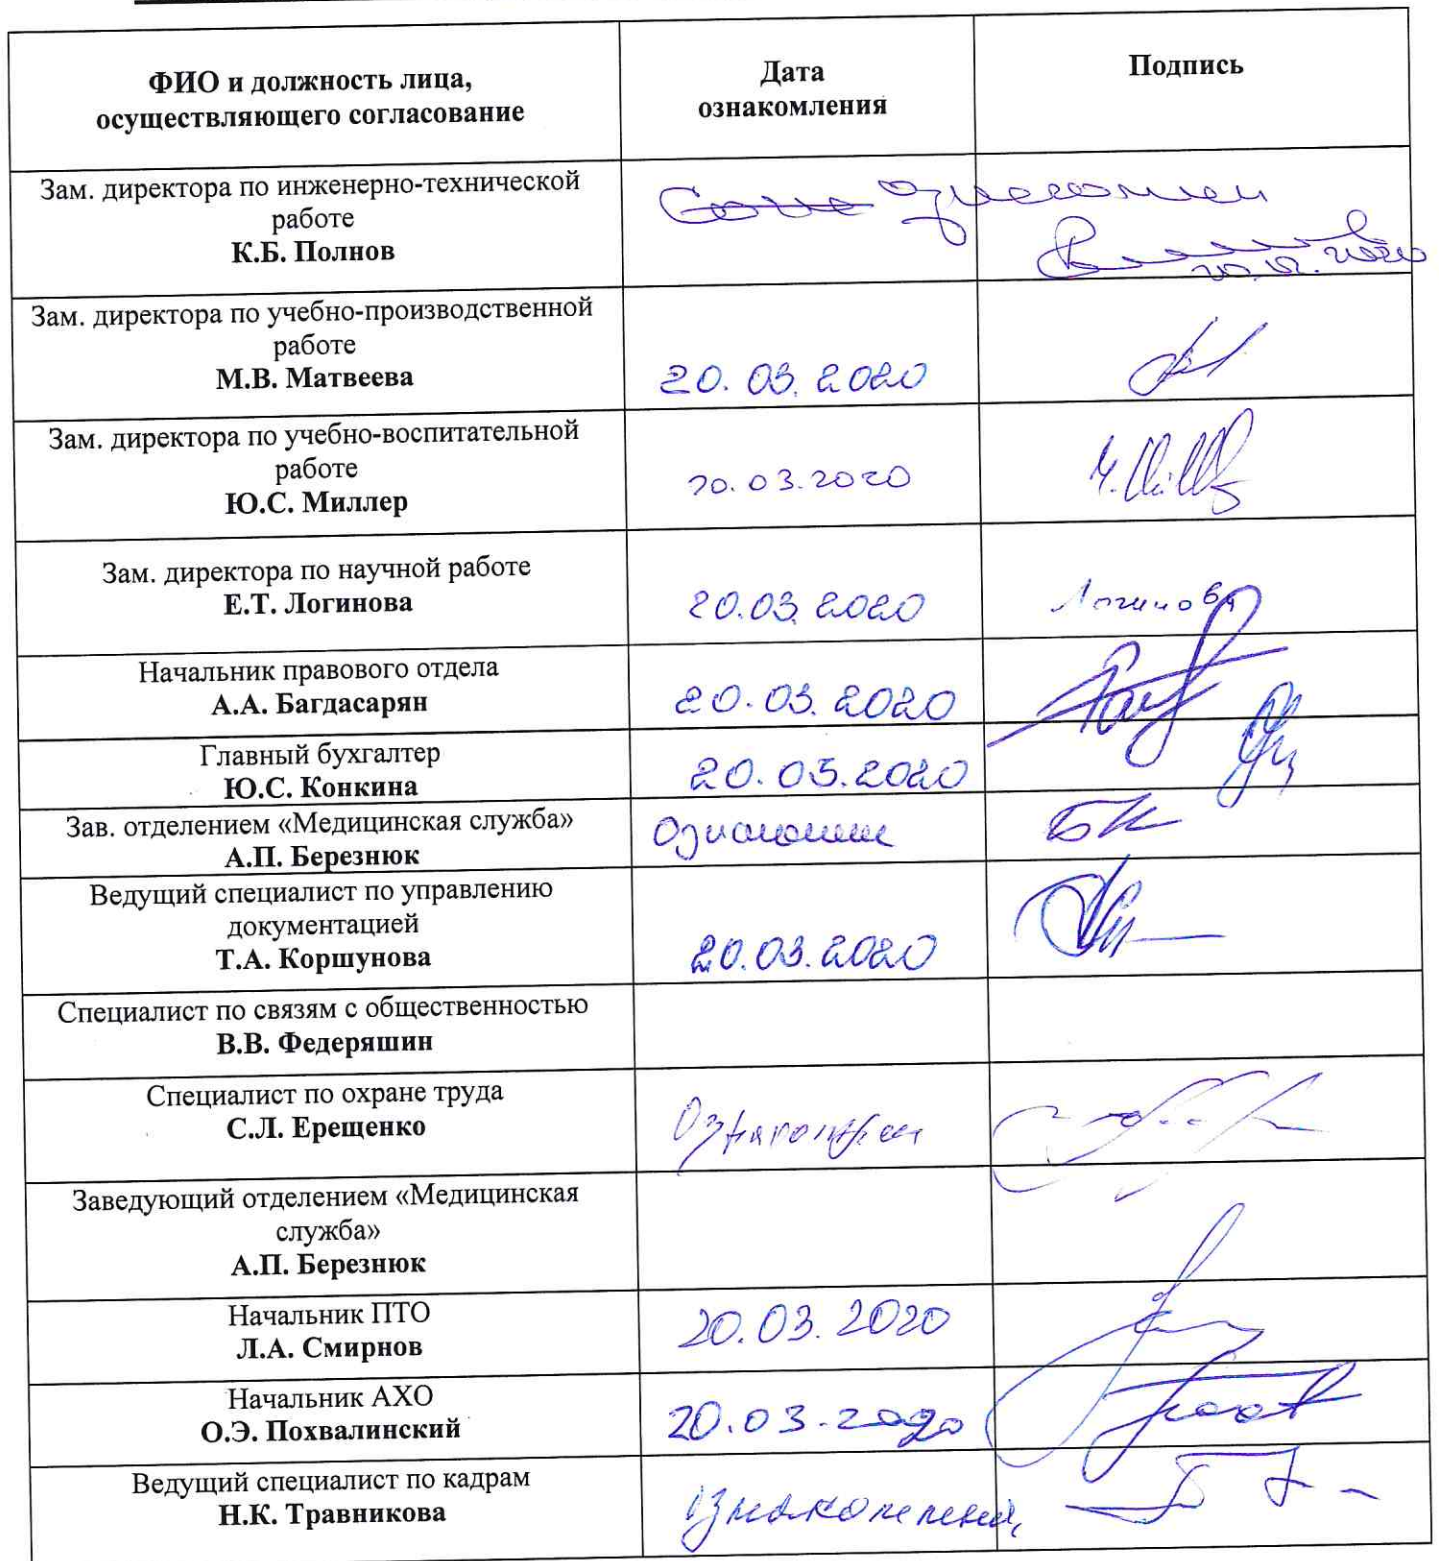 ФИО и должность лица,
осуществляющего согласование
Дата
ознакомления
Подпись
Зам. директора по инженерно-технической
работе
К.Б. Полнов
ознакомлен
Зам. директора по учебно-производственной
работе
М.В. Матвеева
20.03.2020
Зам. директора по учебно-воспитательной
работе
Ю.С. Миллер
20.03.2020
Зам. директора по научной работе
Е.Т. Логинова
20.03.2020
Логинова
Начальник правового отдела
А.А. Багдасарян
20.03.2020
Главный бухгалтер
Ю.С. Конкина
20.03.2020
Зав. отделением «Медицинская служба»
А.П. Березнюк
Ознакомлен
Ведущий специалист по управлению
документацией
Т.А. Коршунова
20.03.2020
Специалист по связям с общественностью
В.В. Федеряшин
Специалист по охране труда
С.Л. Ерещенко
Ознакомлен
Заведующий отделением «Медицинская
служба»
А.П. Березнюк
Начальник ПТО
Л.А. Смирнов
20.03.2020
Начальник АХО
О.Э. Похвалинский
20.03.2020
Ведущий специалист по кадрам
Н.К. Травникова